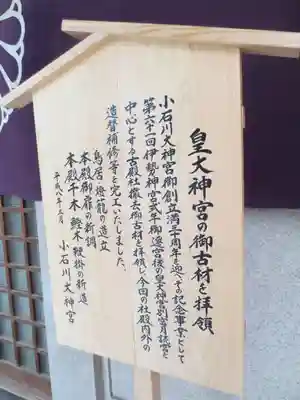 皇大神宮の御古材を拝領
小石川大神宮御創立満三十周年を迎へその記念事業として
第六十一回伊勢神宮式年御遷宮後の皇大神宮別宮月読宮を
中心とする古殿社撤去御古材を拝領し今回の社殿内外の
造替補修等を完工いたしました。
鳥居燈籠の造立
本殿御扉の新調
本殿千木鰹木鞭掛の新造
平成八年三月
小石川大神宮